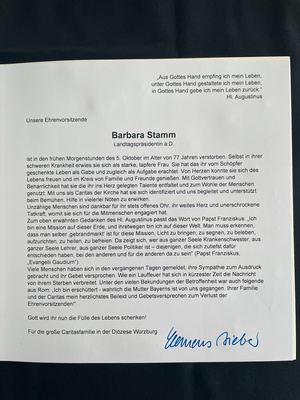 „Aus Gottes Hand empfing ich mein Leben,
unter Gottes Hand gestaltete ich mein Leben,
in Gottes Hand gebe ich mein Leben zurück.“
Hl. Augustinus
Unsere Ehrenvorsitzende
Barbara Stamm
Landtagspräsidentin a.D.
ist in den frühen Morgenstunden des 5. Oktober im Alter von 77 Jahren verstorben. Selbst in ihrer
schweren Krankheit erwies sie sich als starke, tapfere Frau. Sie hat das ihr vom Schöpfer
geschenkte Leben als Gabe und zugleich als Aufgabe erachtet. Von Herzen konnte sie sich des
Lebens freuen und im Kreis von Familie und Freunde genießen. Mit Gottvertrauen und
Beharrlichkeit hat sie die ihr ins Herz gelegten Talente entfaltet und zum Wohle der Menschen
genutzt. Mit uns als Caritas der Kirche hat sie sich identifiziert und uns begleitet und unterstützt
beim Bemühen, Hilfe in vielerlei Nöten zu erwirken.
Unzählige Menschen sind dankbar für ihr stets offenes Ohr, ihr weites Herz und unerschrockene
Tatkraft, womit sie sich für die Mitmenschen engagiert hat.
Zum oben erwähnten Gedanken des Hl. Augustinus passt das Wort von Papst Franziskus: „Ich
bin eine Mission auf dieser Erde, und ihretwegen bin ich auf dieser Welt. Man muss erkennen,
dass man selber ‚gebrandmarkt‘ ist für diese Mission, Licht zu bringen, zu segnen, zu beleben,
aufzurichten, zu heilen, zu befreien. Da zeigt sich, wer aus ganzer Seele Krankenschwester, aus
ganzer Seele Lehrer, aus ganzer Seele Politiker ist – diejenigen, die sich zutiefst dafür
entschieden haben, bei den anderen und für die anderen da zu sein“ (Papst Franziskus,
„Evangelii Gaudium“).
Viele Menschen haben sich in den vergangenen Tagen gemeldet, ihre Sympathie zum Ausdruck
gebracht und ihr Gebet versprochen. Wie ein Lauffeuer hat sich in kürzester Zeit die Nachricht
von ihrem Sterben verbreitet. Unter den vielen Bekundungen der Betroffenheit war auch folgende
aus Rom. „Ich bin erschüttert - wahrlich die Mutter Bayerns ist von uns gegangen. Ihrer Familie
und der Caritas mein herzlichstes Beileid und Gebetsversprechen zum Verlust der
Ehrenvorsitzenden!“
Gott wird ihr nun die Fülle des Lebens schenken!
Für die große Caritasfamilie in der Diözese Würzburg
Clemens Bieber